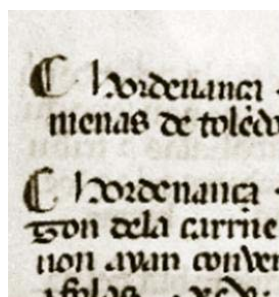 C hordenança
menas de toledo
C hordenança
gon dela carrne
non ayan conver